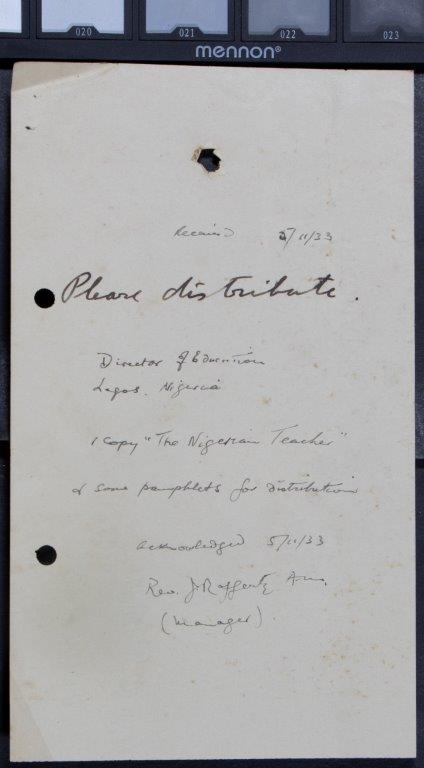 020 021 022 023
mennon®
Received 5/11/33
Please distribute.
Director of Education
Lagos. Nigeria
1 copy "The Nigerian Teacher"
& some pamphlets for distribution
acknowledged 5/11/33
Rev. J. Rafferty
(Manager)